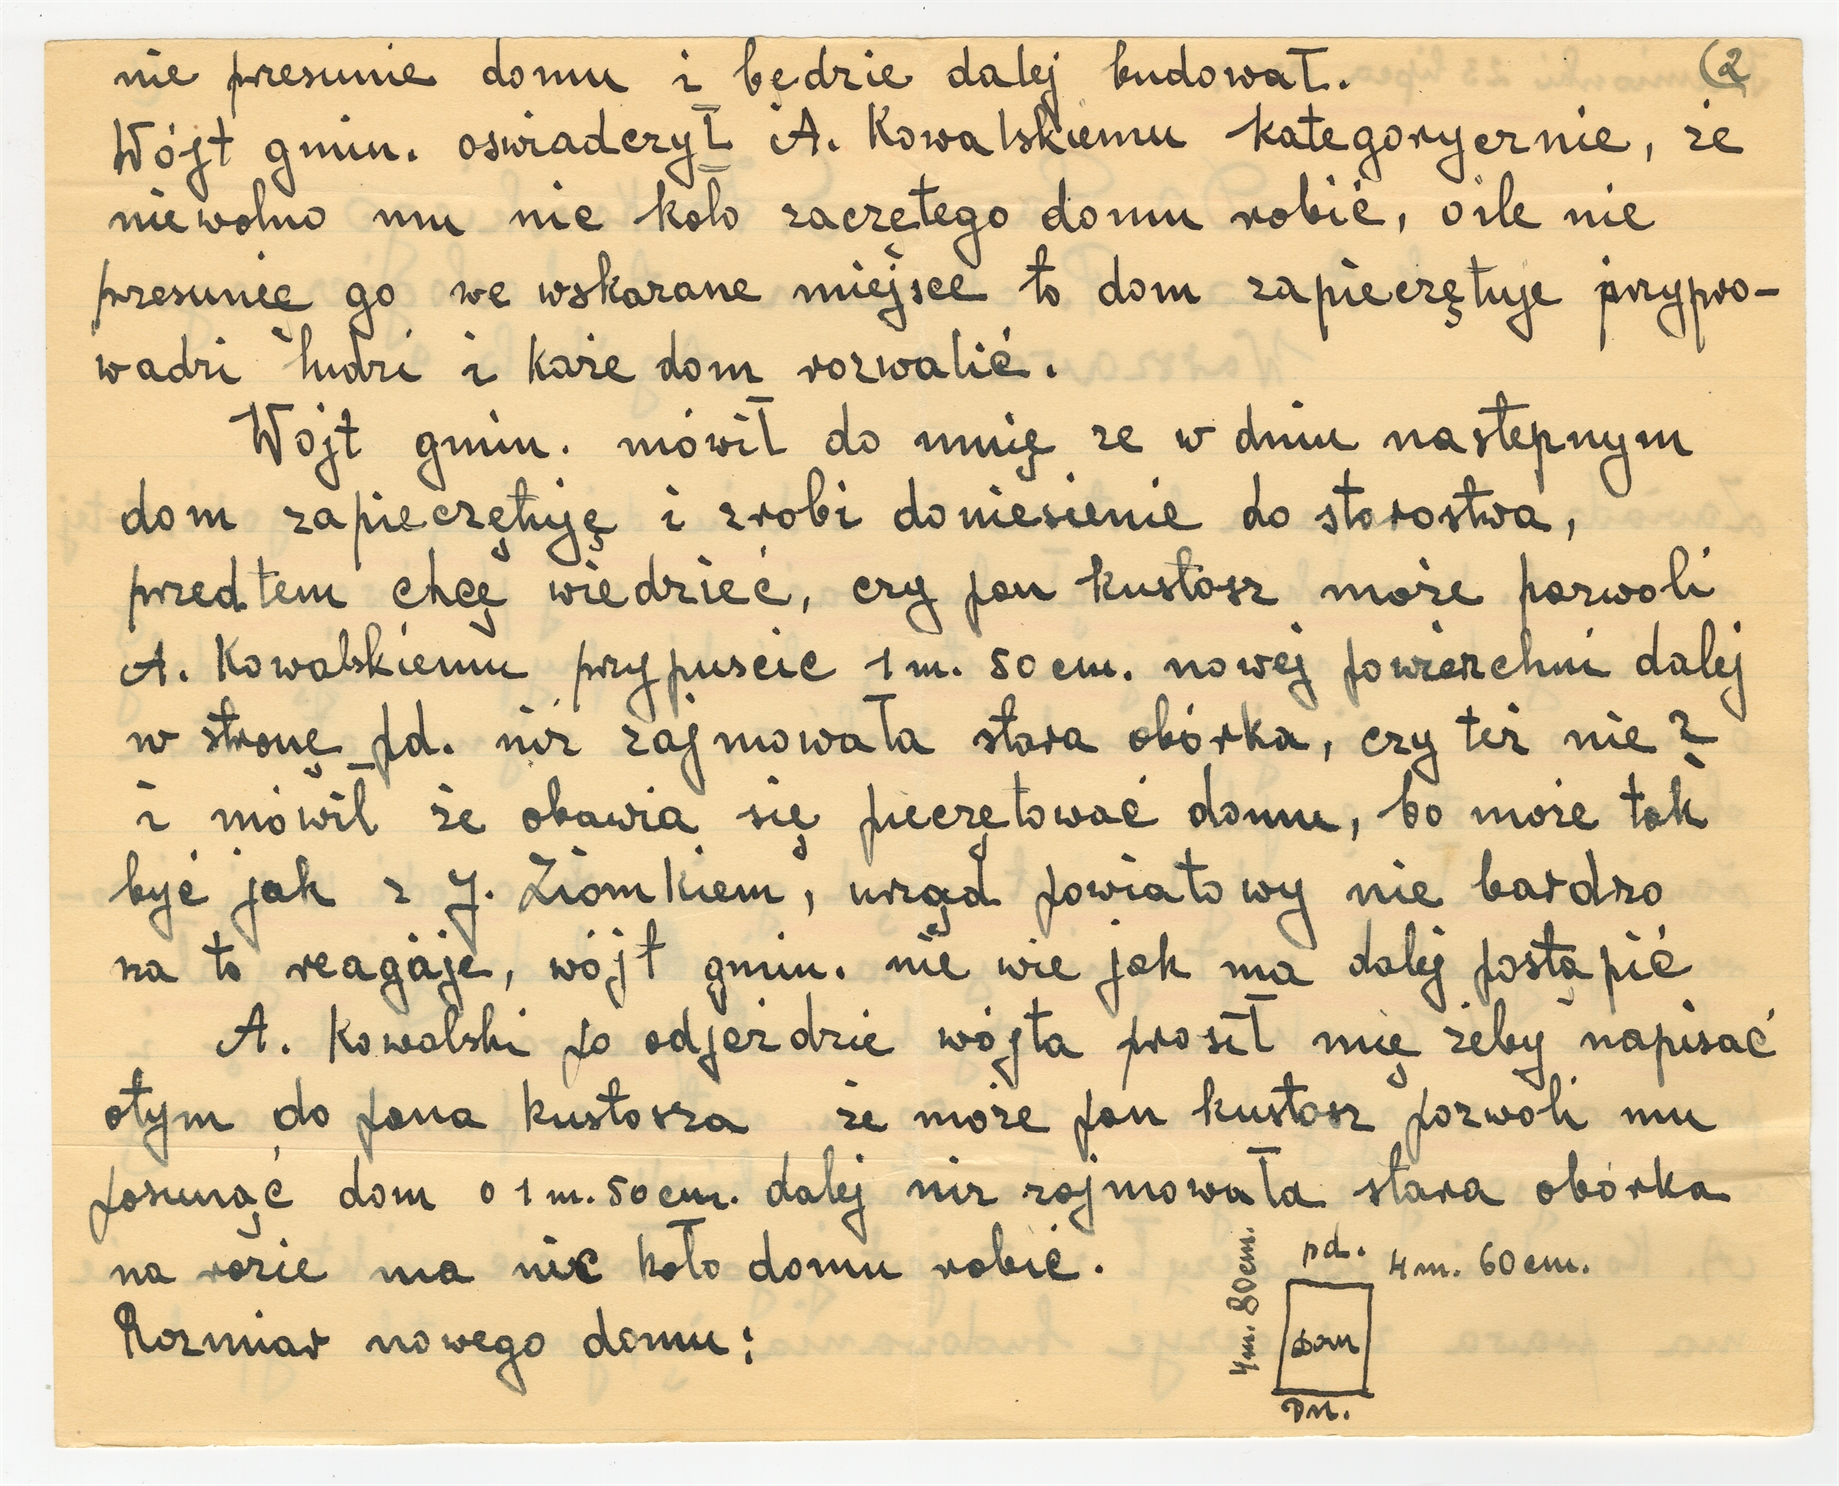 (2
nie przesunie domu i będzie dalej budował.
Wójt gmin. oświadczył A. Kowalskiemu kategorycznie, że
niewolno mu nic koło zaczętego domu robić, oile nie
przesunie go we wskazane miejsce to dom zapieczętuje przypro-
wadzi ludzi i każe dom rozwalić.
Wójt gmin. mówił do mnię ze w dniu nastepnym
dom zapieczętuję i zrobi doniesienie do starostwa,
przedtem chcę wiedzieć, czy pan kustosz może pozwoli
A. Kowalskiemu przypuscic 1 m. 50 cm. nowej powierzchni dalej
w stronę pd. niż zajmowała stara obórka, czy też nie?
i mówił że obawia się pieczętować domu, bo może tak
być jak z J. Ziomkiem, urząd powiatowy nie bardzo
na to reagaje, wójt gmin. nie wie jak ma dalej postąpić
A. Kowalski po odjeździe wójta prosił mię żeby napisać
otym do pana kustosza że może pan kustosz pozwoli mu
posunąć dom o 1 m. 50 cm. dalej niz zajmowała stara obórka
na razie ma nic koło domu robić.
Rozmiar nowego domu:
pd. 4 m. 60 cm.
4 m. 80 cm.
Dom
Pn.